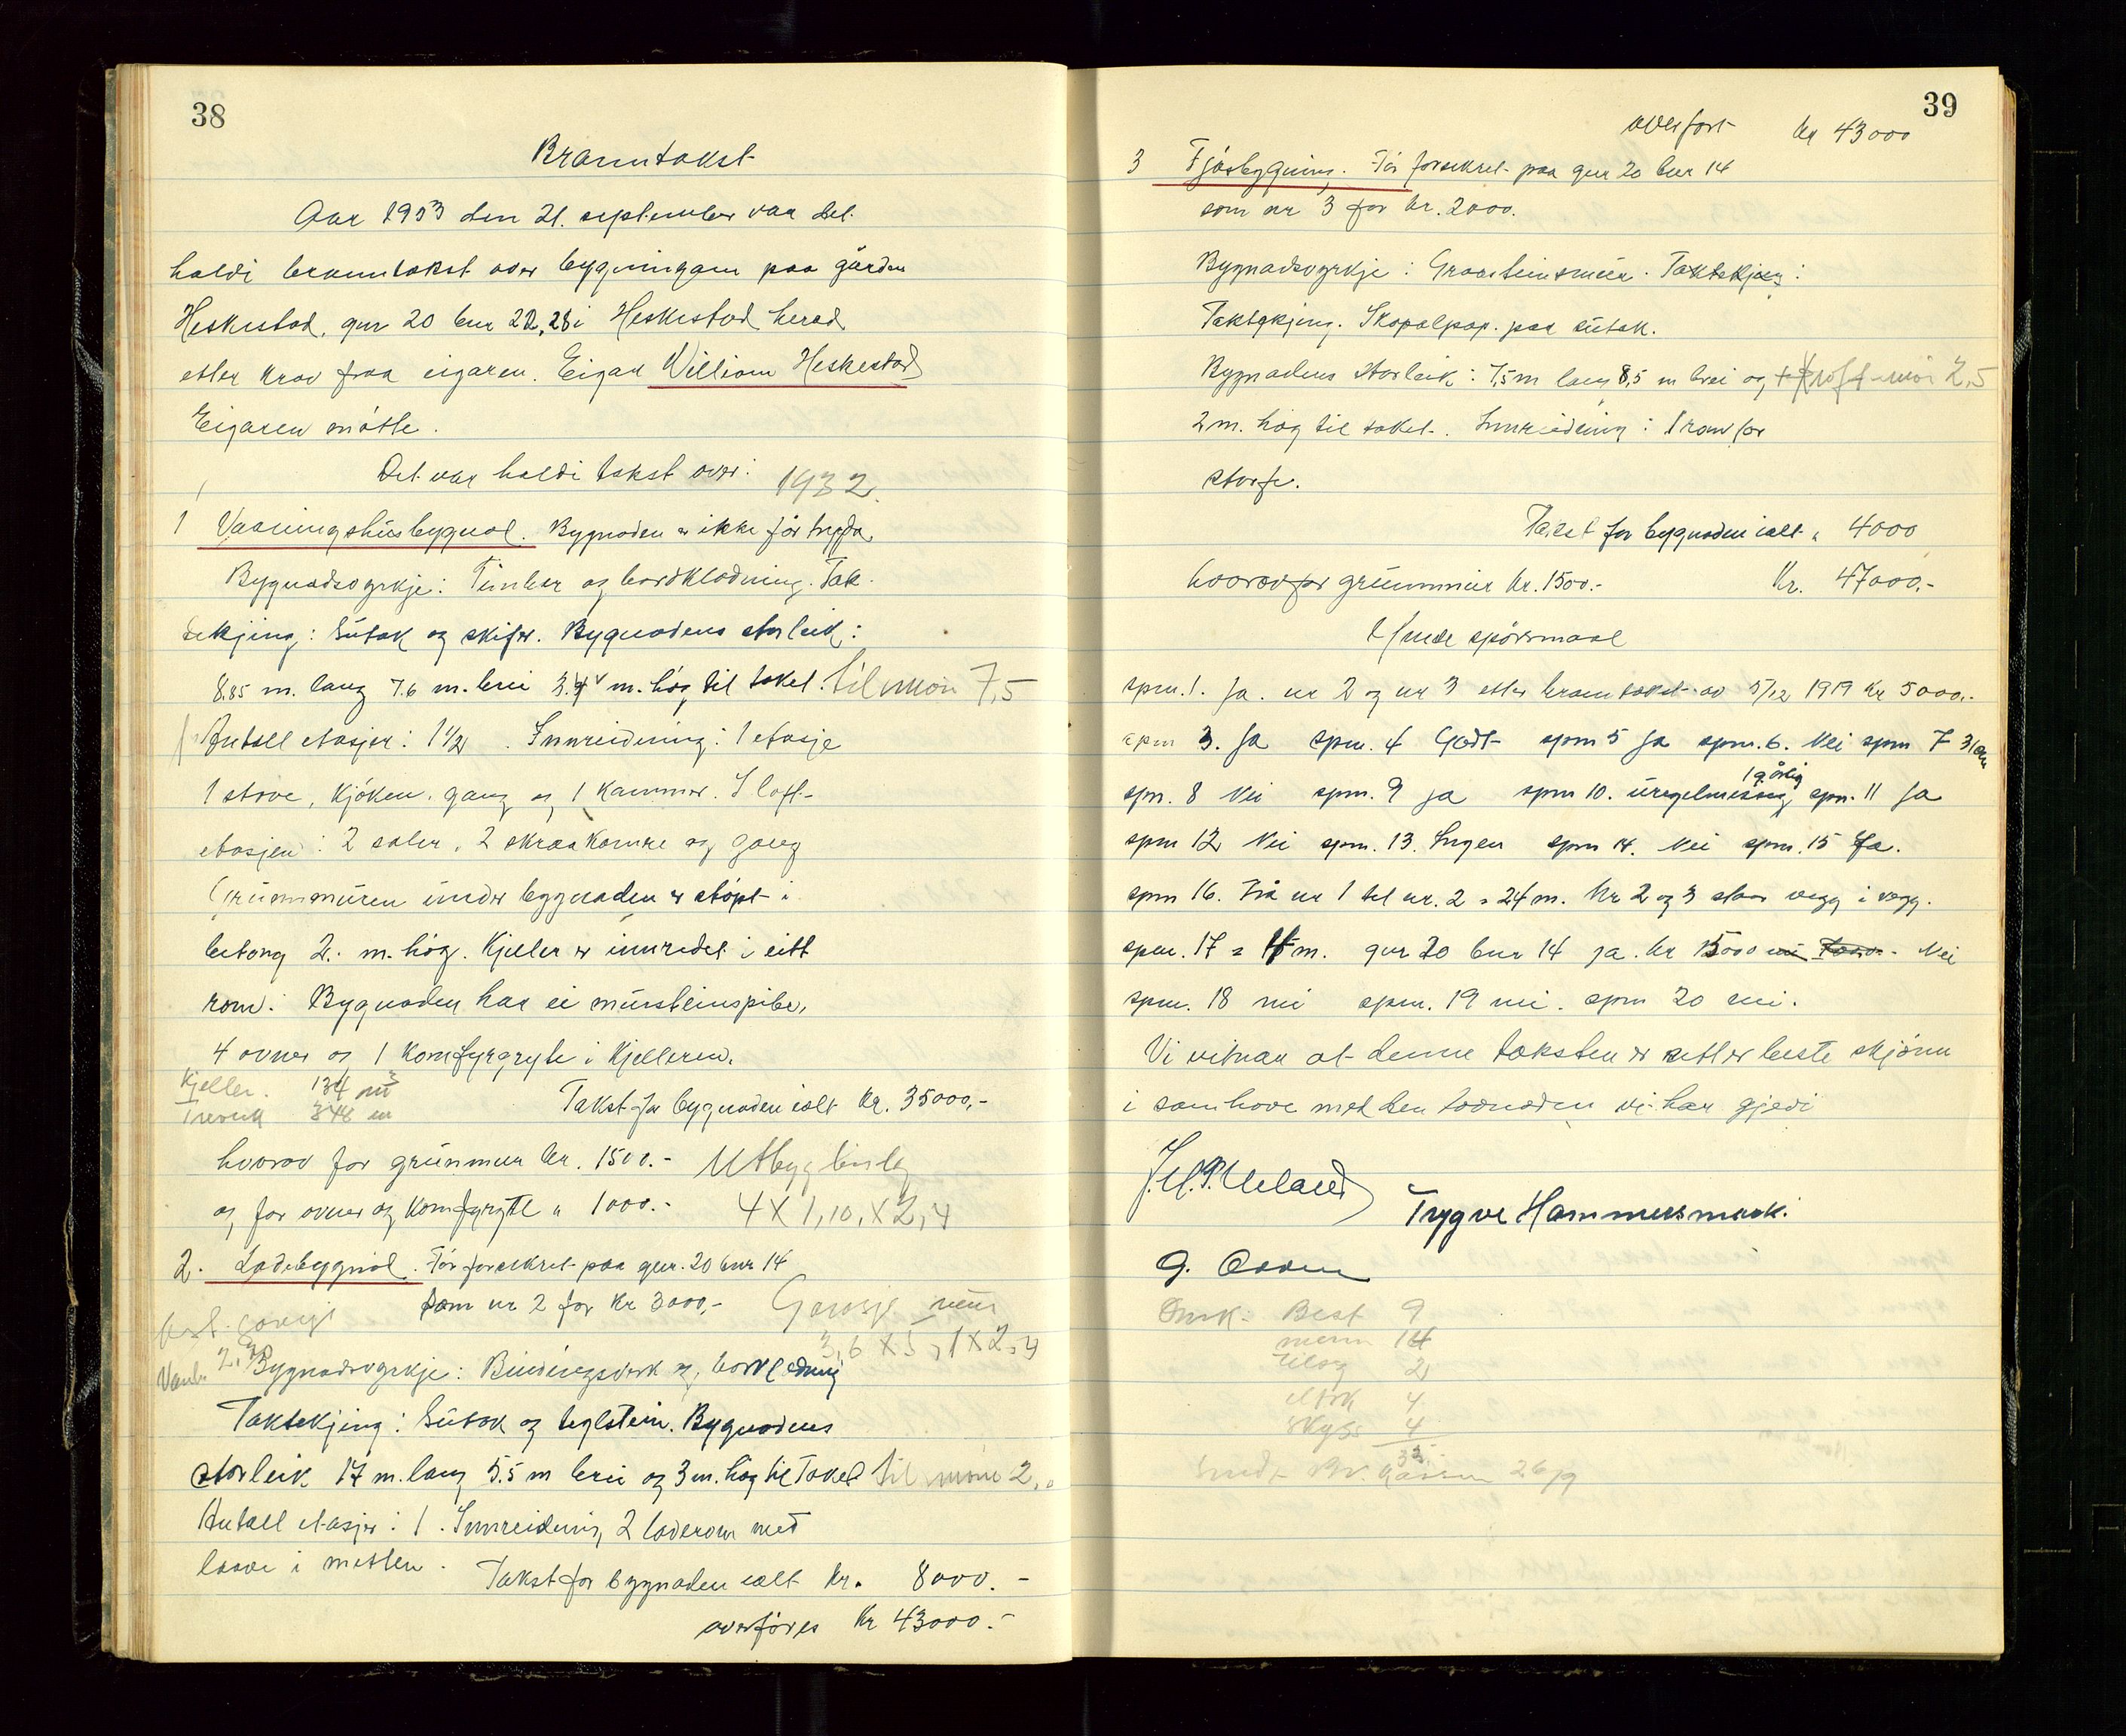 38
Branntakst
Aar 1953 den 21. september var det
haldi branntakst over bygningan paa gården
Heskestad, gnr 20 bnr 22, 28 i Heskestad herad
etter krav fraa eigaren. Eigar William Heskestad
Eigaren møtte.
Det var haldi takst over: 1932.
1 Vaaningshusbygnad. Bygnaden er ikke før trygda.
Bygnadsvyrkje: Timber og bordkledning. Tak-
tekjing: Sutak og skifer. Bygnadens storleik:
8,85 m. lang 7.6 m. brei 3.4 m. høg til taket. til møn 7,5
Antall etasjer: 1 1/2. Innreidning: 1 etasje
1 stove, kjøken, gang og 1 kammer. I loft-
etasjen: 2 saler, 2 skraakamre og gang
Grunnmuren under bygnaden er støpt i
betong 2. m. høg. Kjeller er innredet i eitt
rom. Bygnaden har ei mursteinspipe,
4 ovner og 1 komfyrgryte i kjelleren.
Kjeller. 134 m3
Treverk 348 m
Takst for bygnaden ialt kr. 35000,-
hvorav for grunmur kr. 1500.- Utbygg
og for ovner og komfyrgryte " 1000.- 4 X 1,10, X 2,4
2. Ladebygnad. Før forsekret paa gnr. 20 bnr 14
som nr 2 for kr 3000,- Garasje
3,6 X 5,1 X 2,4
Bygnadsvyrkje: Bindingsverk og bordkledning
Taktekjing: Sutak og teglstein. Bygnadens
storleik 17 m. lang 5.5 m brei og 3 m. høg til taket til møne 2,0
Antall etasjer: 1. Innreidning, 2 laderom med
laave i mitten.
Takst for bygnaden ialt kr. 8000.-
overføres kr 43000.-
39
overført kr 43000
3 Fjøsbygning. Før forsekret paa gnr 20 bnr 14
som nr 3 for kr. 2000.
Bygnadsvyrkje: Graasteinsmur. Taktekjing:
Taktekjing. Skopalpap. paa sutak.
Bygnadens storleik: 7,5 m lang 8,5 m brei og 2,5
2 m. høg til taket. Innreidning: 1 rom for
storfe.
Takst for bygnaden ialt " 4000
hvorav for grunnmur kr. 1500.- Kr. 47000.-
Ymse spørsmaal
spm. 1. Ja. nr 2 og nr 3 etter branntakst av 5/12 1919 kr 5000.-
spm 3. Ja spm. 4 Godt spm 5 Ja spm. 6. Nei spm 7
spm. 8 Nei spm. 9 ja spm 10. uregelmessig spm. 11 Ja
spm 12 Nei spm. 13. Ingen spm 14. Nei spm. 15 Ja.
spm 16. Frå nr 1 til nr. 2 = 24 m. Nr 2 og 3 staar vegg i vegg.
spm. 17 = m. gnr 20 bnr 14 ja. kr 15000 Nei
spm. 18 nei spm. 19 nei. spm 20 nei.
Vi vitnar at denne taksten er sett etter beste skjønn
i samhøve med den lovnaden vi har gjedi
Trygve Hammersmark.
Best 9
menn 14
2
4
Skyss 4
Kassen 26/9